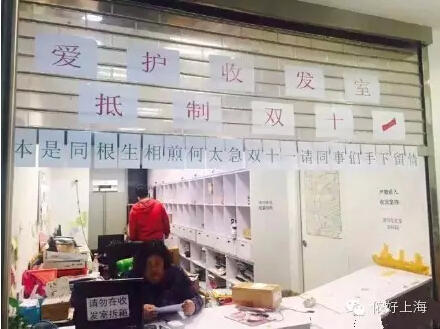 爱护收发室
抵制双十一
本是同根生相煎何太急双十一请同事们手下留情
请勿在收
发室拆箱
你好上海